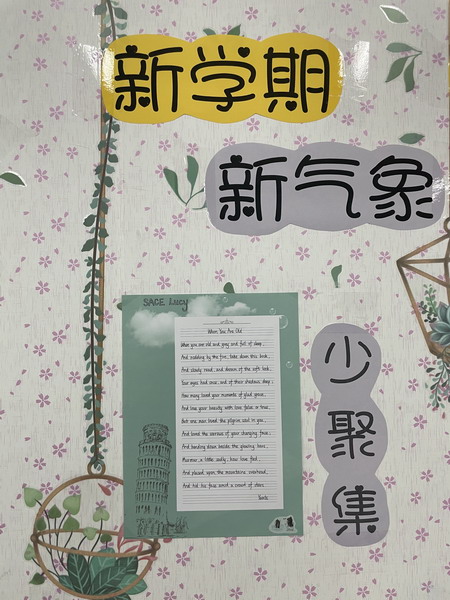 新学期
新气象
少聚集
SACE Lucy
When You Are Old
When you are old and grey and full of sleep,
And nodding by the fire, take down this book,
And slowly read, and dream of the soft look
Your eyes had once, and of their shadows deep;
How many loved your moments of glad grace,
And love your beauty with love false or true,
But one man loved the pilgrim soul in you,
And loved the sorrows of your changing face;
And bending down beside the glowing bars,
Murmur, a little sadly, how love fled
And paced upon the mountains overhead
And hid his face amid a crowd of stars.
Yeats